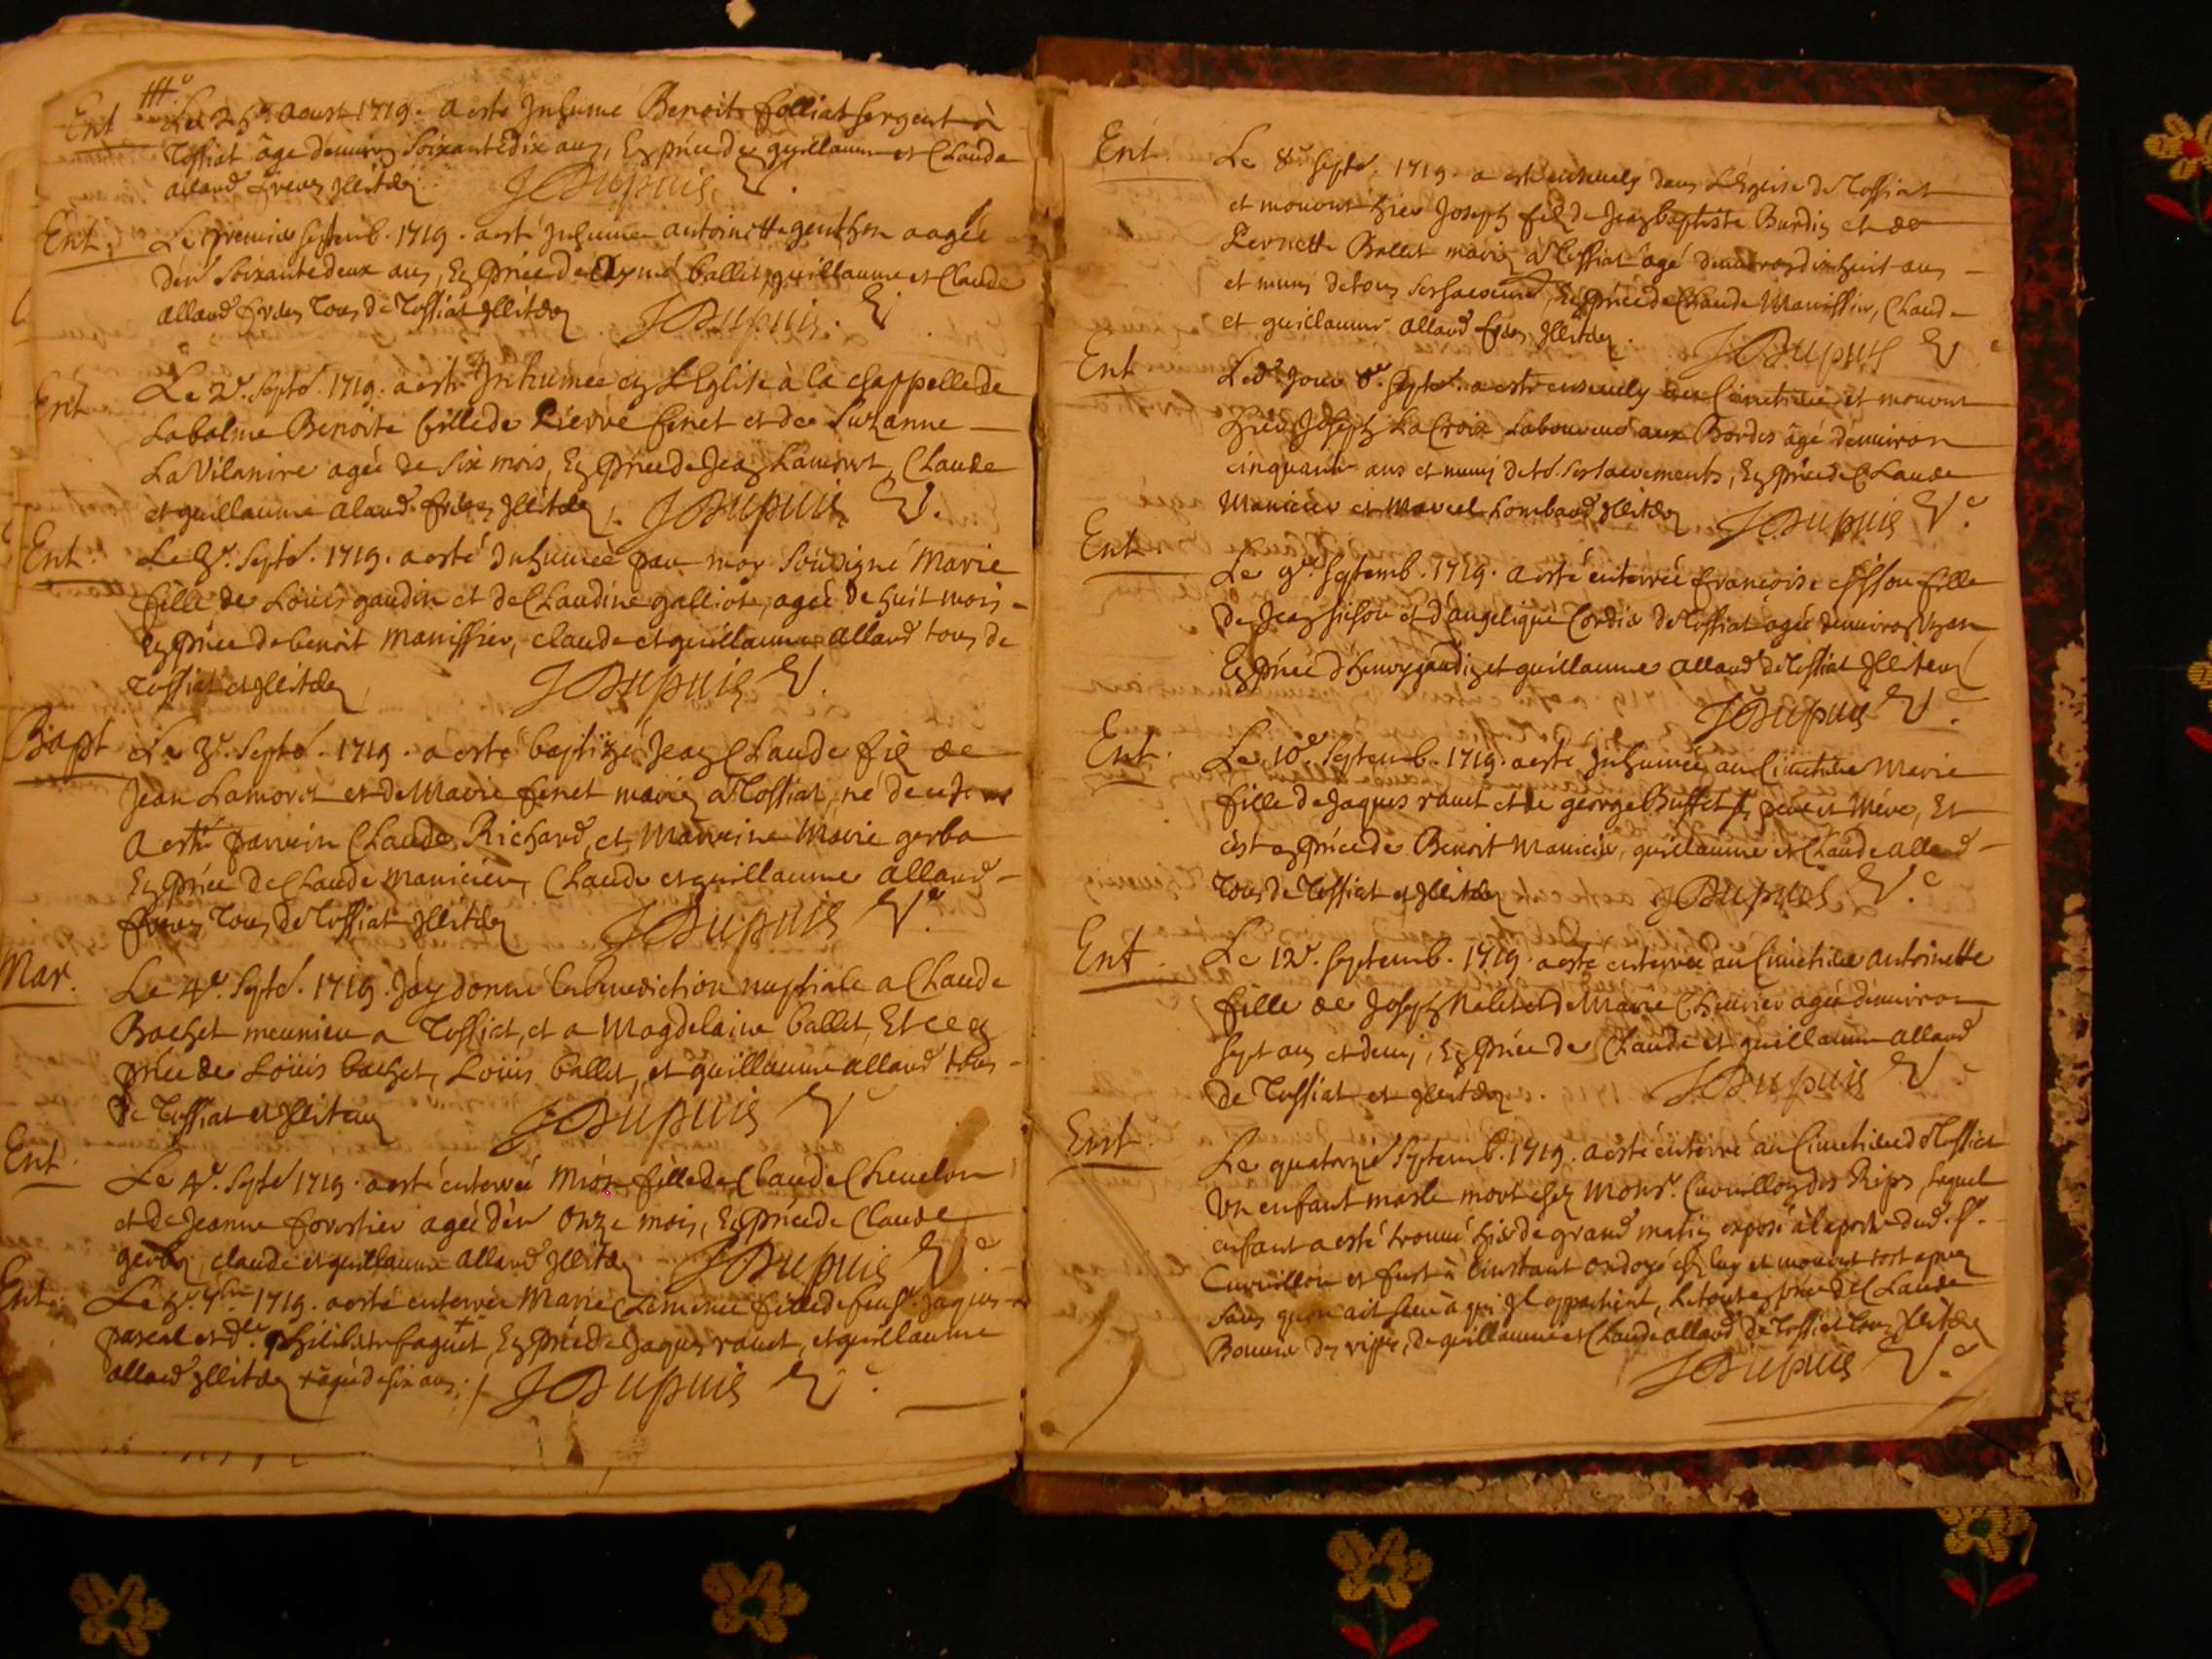 Ent Le 25e aoust 1719. a esté Inhumé Benoit folliat sergent à
Tossiat âgé denviron soixantedix ans, En pñce de guillaume et Claude
alland freres Illitdez JDupuis V.
Ent. Le premier septemb. 1719. a esté Inhumée antoinette genthon aagée
d'en soixantedeux ans, En pñce de Aymé ballet, guillaume et Claude
alland frdes tous de Tossiat Illitdez JDupuis. V.
Ent Le 2e. Septe. 1719. a esté Inhumée en L'Eglise à la chappelle de
Labalme Benoite fille de Pierre fenet et de Suzanne
La Vilanire agée de six mois, En pñce de Jean Lamoret, Claude
et guillaume aland frdes Illitdez. JDupuis V.
Ent. Le 3e. Septe. 1719. a esté Inhumée par moy soúsigné Marie
fille de Loüis gaudin et de Claudine galliot, agée de huit mois
En pñce de benoit manissier, claude et guillaume alland tous de
Tossiat et Illitdez JDupuis V.
Bapt Le 3e. Septe. 1719. a esté baptizé Jean Claude fils de
Jean Lamoret et de Marie fenet mariez a Tossiat, né de ce Jour
A esté parrein Claude Richard, et Marreine Marie gerba
En pñce de Claude manicier, Claude et guillaume alland
freres, Tous de Tossiat Illitdez JDupuis Ve.
Mar. Le 4e. Septe. 1719. J'ay donné la benediction nuptiale a Claude
Bachet meunier a Tossiat, et a Magdelaine ballet, Et ce en
pñce de Loüis bachet, Loüis ballet, et guillaume alland tous
de Tossiat et Illiteréz JDupuis V
Ent. Le 4e. Septe 1719. a esté enterrée Mion fille de Claude Cheuelon
et de Jeanne forestier agée d'en onze mois, En pñce de Claude
gerba, claude et guillaume alland Illitdez JDupuis Ve.
Ent. Le 7bre 1719. a esté enterrée Marie Clemence fille de feu sr. Jaques
pascal et dlle. philiberte faguet, + En pñce de Jaques rauet, et guillaume
alland Illitdez + agée de six ans. JDupuis Ve.
Ent. Le 8e septe. 1719. a esté enseuely dans L'Eglise de Tossiat
et mourut hier Joseph fils de Jean baptiste Burdin et de
Pernette Ballet mariez a Tossiat âgé denviron dix huit ans
et muny de tous ses sacremts, En pñce de Claude Manissier, Claude
et guillaume alland frdes Illitdez. JDupuis Ve
Ent Led. Jour 8e. Septe. a esté enseuely au Cimetiere et mourut
hier Joseph La Croix Laboureur aux Bordes âgé denviron
cinquante ans et muny de ts. ses sacrements, En pñce de Claude
Manicier et Marcel Lombard Illitdez JDupuis Ve.
Ent Le 9e. Septemb. 1719. a esté enterrée francoise fille
de Jean et d'angelique Cordier de Tossiat agée denviron Un an
En pñce d'henry gaudin et guillaume alland de Tossiat Illiterez
JDupuis Ve.
Ent. Le 10e. Septemb. 1719. a esté Inhumée au Cimetiere Marie
fille de Jaques rauet et de george Buffet ses pere et Mere, Et
c'est en pñce de Benoit Manicier, guillaume et Claude alland
tous de Tossiat et Illitdez JDupuis Ve.
Ent. Le 12e. septemb. 1719. a esté enterrée au Cimetiere antoinette
fille de Joseph Nalet et de Marie Cheurier agée denviron
sept ans et demj, En pñce de Claude et guillaume alland
de Tossiat et Illitdez. JDupuis V
Ent. Le quatorzie Septemb. 1719. a esté enterré au Cimetiere de Tossiat
Un enfant masle mort chez Monsr. Curuillon des Rips, Lequel
enfant a esté trouué hier de grand matin exposé à la porte dud. sr.
Curuillon et fust à l'instant ondoyé chez luy et mourut tost apres
sans qu'on ait sceu à qui Il appartient, Le tout en pñce de Claude
des rippes, de guillaume et Claude alland de Tossiat tous Illitdez
JDupuis Ve.